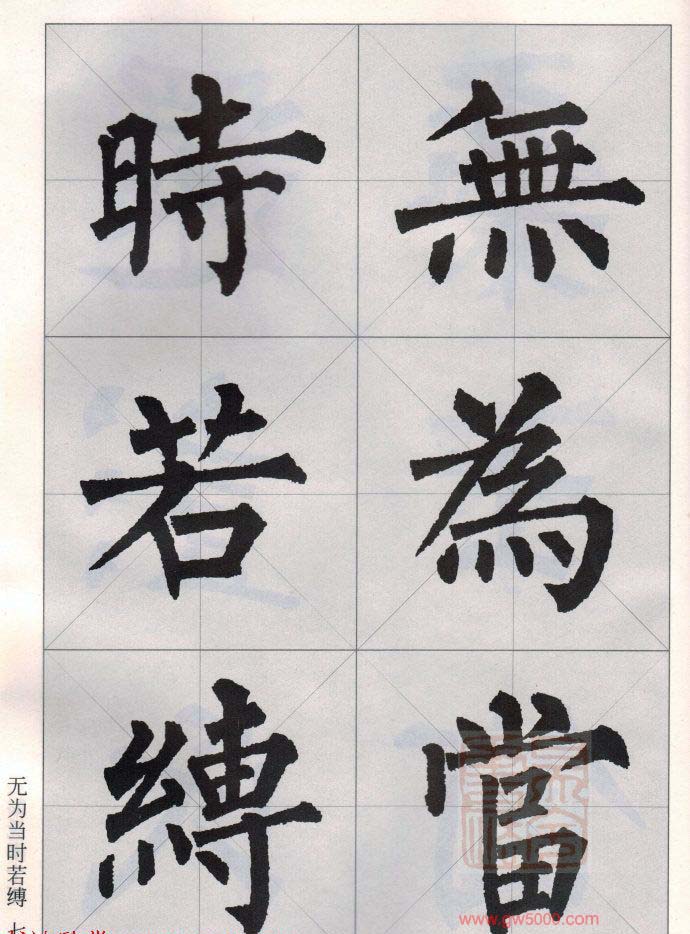 無為當
時若縛
无为当时若缚 七
www.gw5009.com